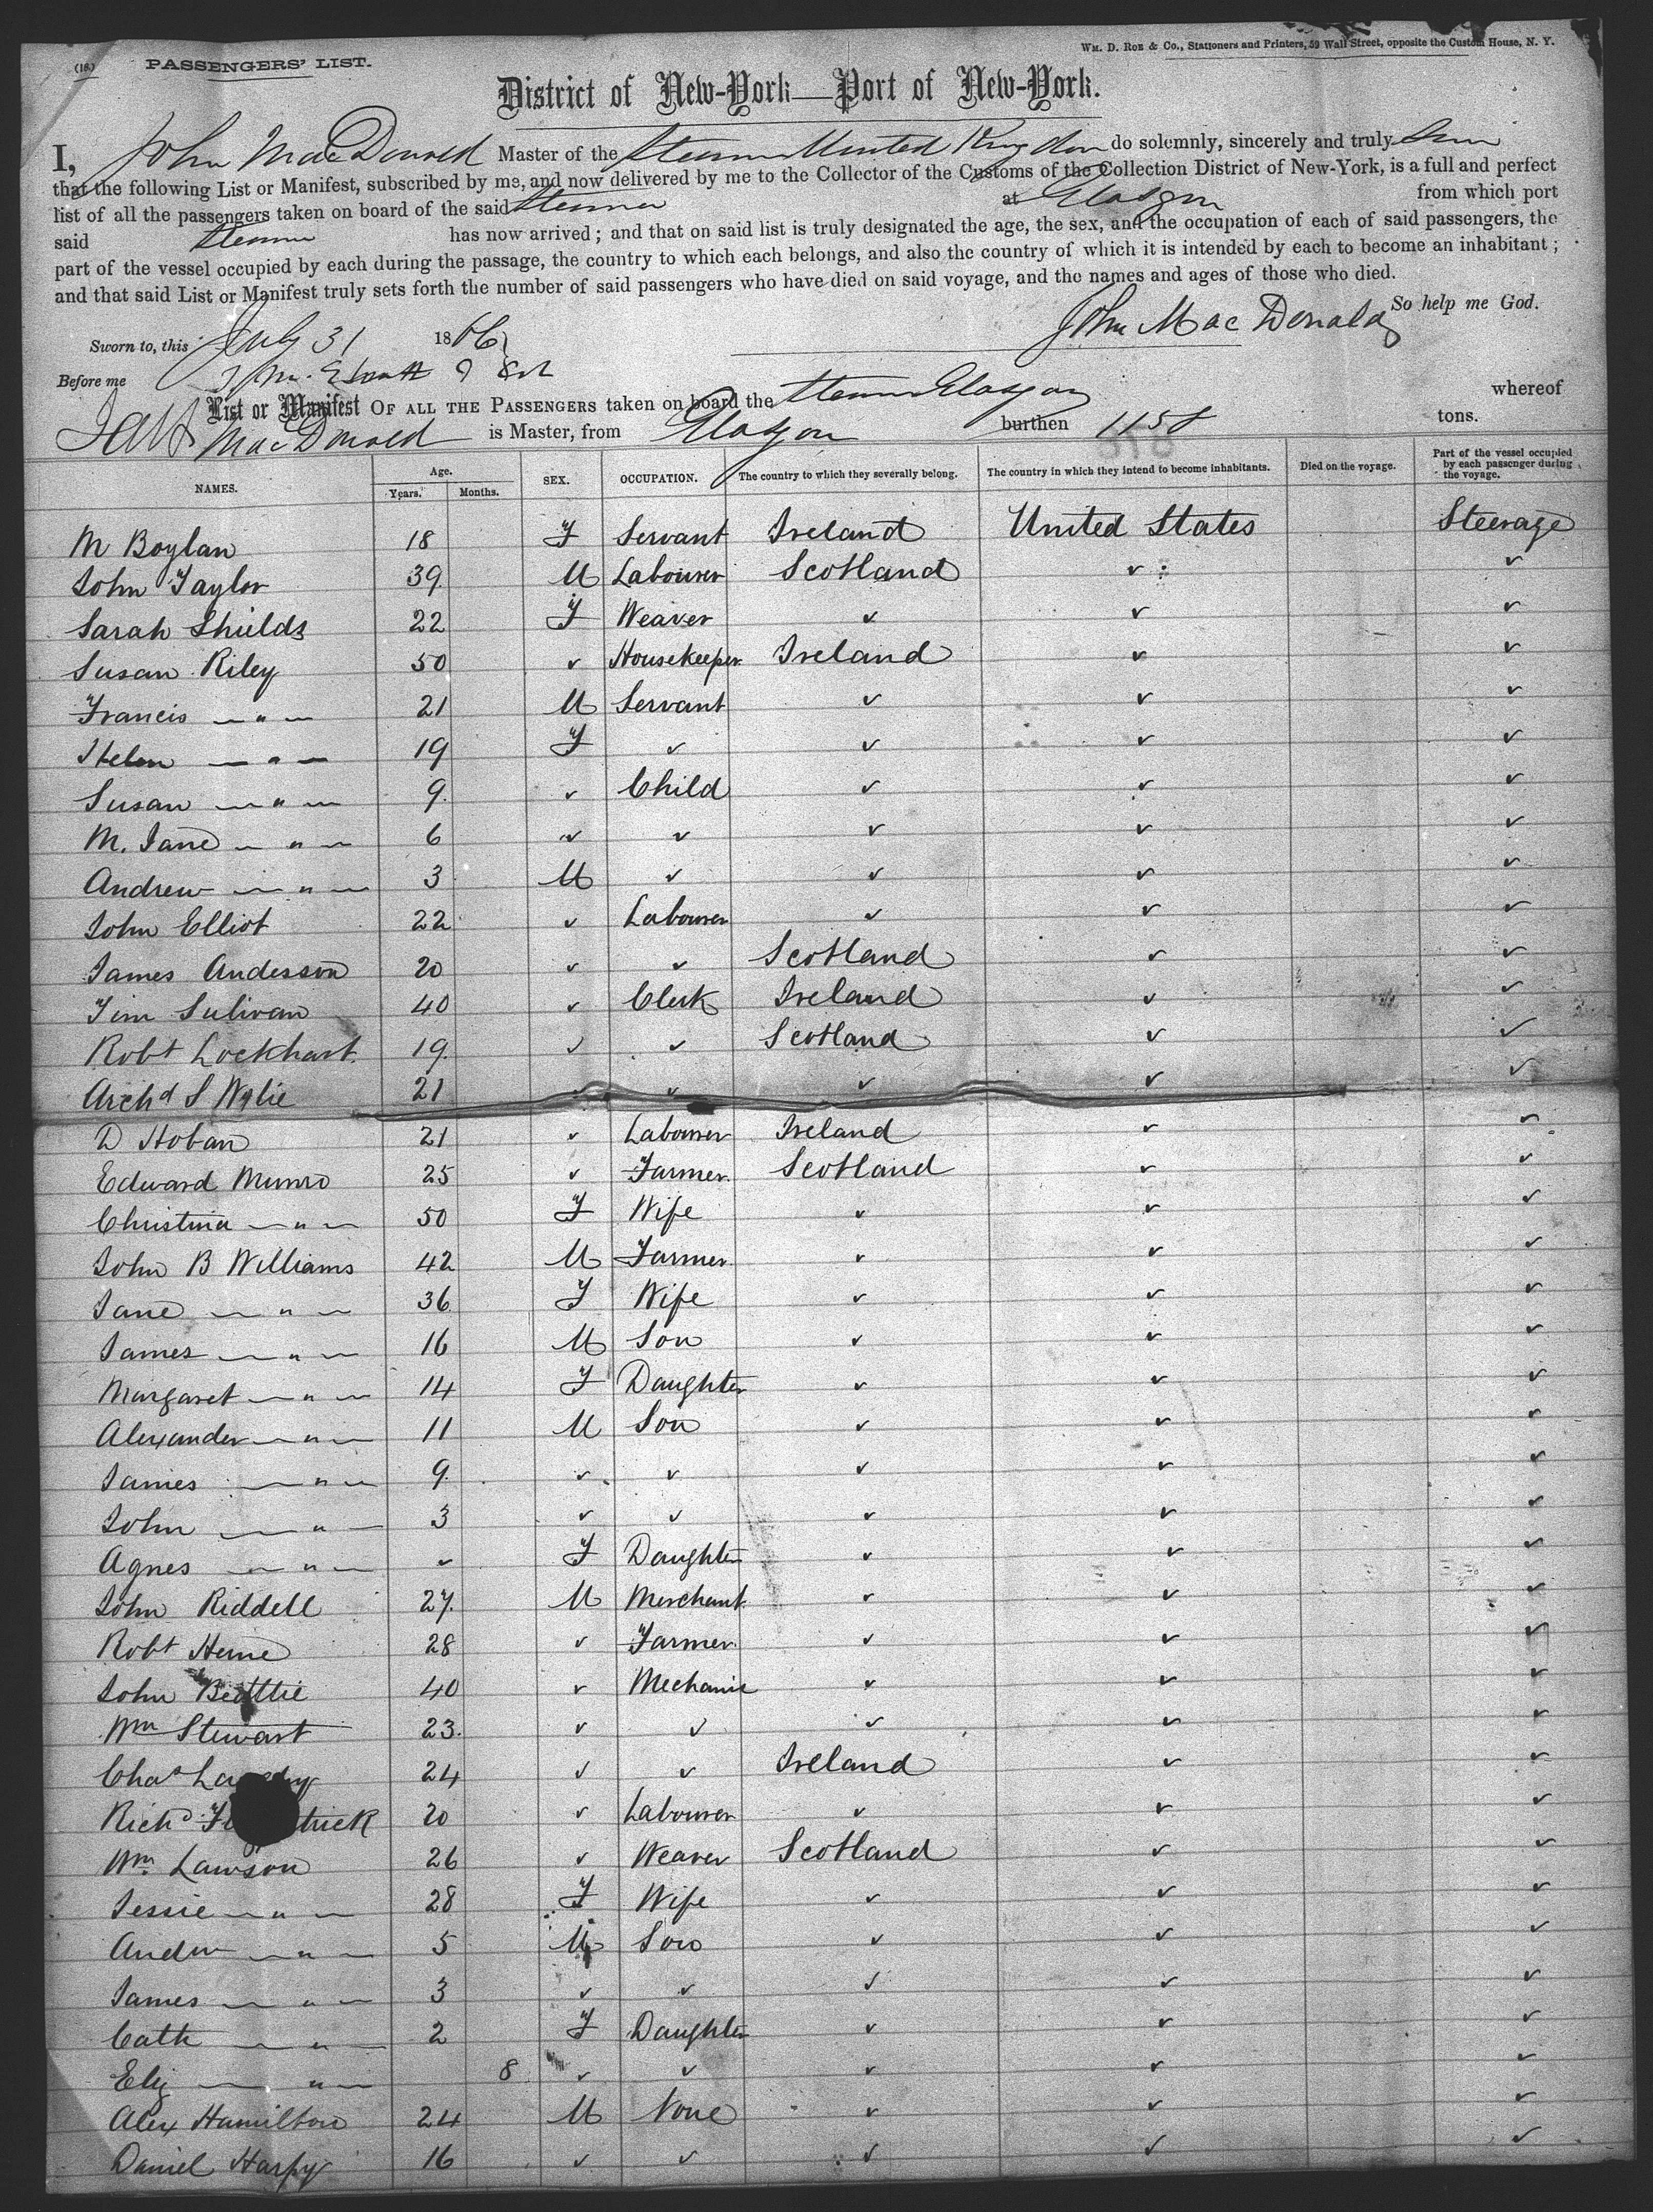 (18.) PASSENGERS' LIST.
WM. D. ROE & Co., Stationers and Printers, 59 Wall Street, opposite the Custom House, N. Y.
District of New-York—Port of New-York.
I, John MacDonald Master of the Steamer United Kingdom do solemnly, sincerely and truly
that the following List or Manifest, subscribed by me, and now delivered by me to the Collector of the Customs of the Collection District of New-York, is a full and perfect
list of all the passengers taken on board of the said Steamer at Glasgow from which port
said Steamer has now arrived; and that on said list is truly designated the age, the sex, and the occupation of each of said passengers, the
part of the vessel occupied by each during the passage, the country to which each belongs, and also the country of which it is intended by each to become an inhabitant;
and that said List or Manifest truly sets forth the number of said passengers who have died on said voyage, and the names and ages of those who died.
So help me God.
Sworn to, this July 31 1866 John MacDonald
Before me
List or Manifest OF ALL THE PASSENGERS taken on board the Steamer Glasgow whereof
MacDonald is Master, from Glasgow burthen 1158 tons.
NAMES. Age. Years. Months. SEX. OCCUPATION. The country to which they severally belong. The country in which they intend to become inhabitants. Died on the voyage. Part of the vessel occupied by each passenger during the voyage.
M Boylan 18 F Servant Ireland United States Steerage
John Taylor 39 M Labourer Scotland ✓ ✓
Sarah Shields 22 F Weaver ✓ ✓ ✓
Susan Riley 50 ✓ Housekeeper Ireland ✓ ✓
Francis — " — 21 M Servant ✓ ✓ ✓
Helen — " — 19 F ✓ ✓ ✓ ✓
Susan — " — 9 ✓ Child ✓ ✓ ✓
M. Jane — " — 6 ✓ ✓ ✓ ✓ ✓
Andrew — " — 3 M ✓ ✓ ✓ ✓
John Elliot 22 ✓ Labourer ✓ ✓ ✓
James Anderson 20 ✓ ✓ Scotland ✓ ✓
Tim Sulivan 40 ✓ Clerk Ireland ✓ ✓
Robt Lockhart 19 ✓ ✓ Scotland ✓ ✓
Archd S Wylie 21 ✓ ✓ ✓ ✓
D Hoban 21 ✓ Labourer Ireland ✓ ✓
Edward Munro 25 ✓ Farmer Scotland ✓ ✓
Christina — " — 50 F Wife ✓ ✓ ✓
John B Williams 42 M Farmer ✓ ✓ ✓
Jane — " — 36 F Wife ✓ ✓ ✓
James — " — 16 M Son ✓ ✓ ✓
Margaret — " — 14 F Daughter ✓ ✓ ✓
Alexander — " — 11 M Son ✓ ✓ ✓
James — " — 9 ✓ ✓ ✓ ✓ ✓
John — " — 3 ✓ ✓ ✓ ✓ ✓
Agnes — " — ✓ F Daughter ✓ ✓ ✓
John Riddell 27 M Merchant ✓ ✓ ✓
Robt 28 ✓ Farmer ✓ ✓ ✓
John Beattie 40 ✓ Mechanic ✓ ✓ ✓
Wm Stewart 23 ✓ ✓ ✓ ✓ ✓
Chas 24 ✓ ✓ Ireland ✓ ✓
Richd 20 ✓ Labourer ✓ ✓ ✓
Wm Lawson 26 ✓ Weaver Scotland ✓ ✓
Jessie — " — 28 F Wife ✓ ✓ ✓
Andw — " — 5 M Son ✓ ✓ ✓
James — " — 3 ✓ ✓ ✓ ✓ ✓
Cath — " — 2 F Daughter ✓ ✓ ✓
Eliz — " — 8 ✓ ✓ ✓ ✓ ✓
Alex Hamilton 24 M None ✓ ✓ ✓
Daniel Harpy 16 ✓ ✓ ✓ ✓ ✓